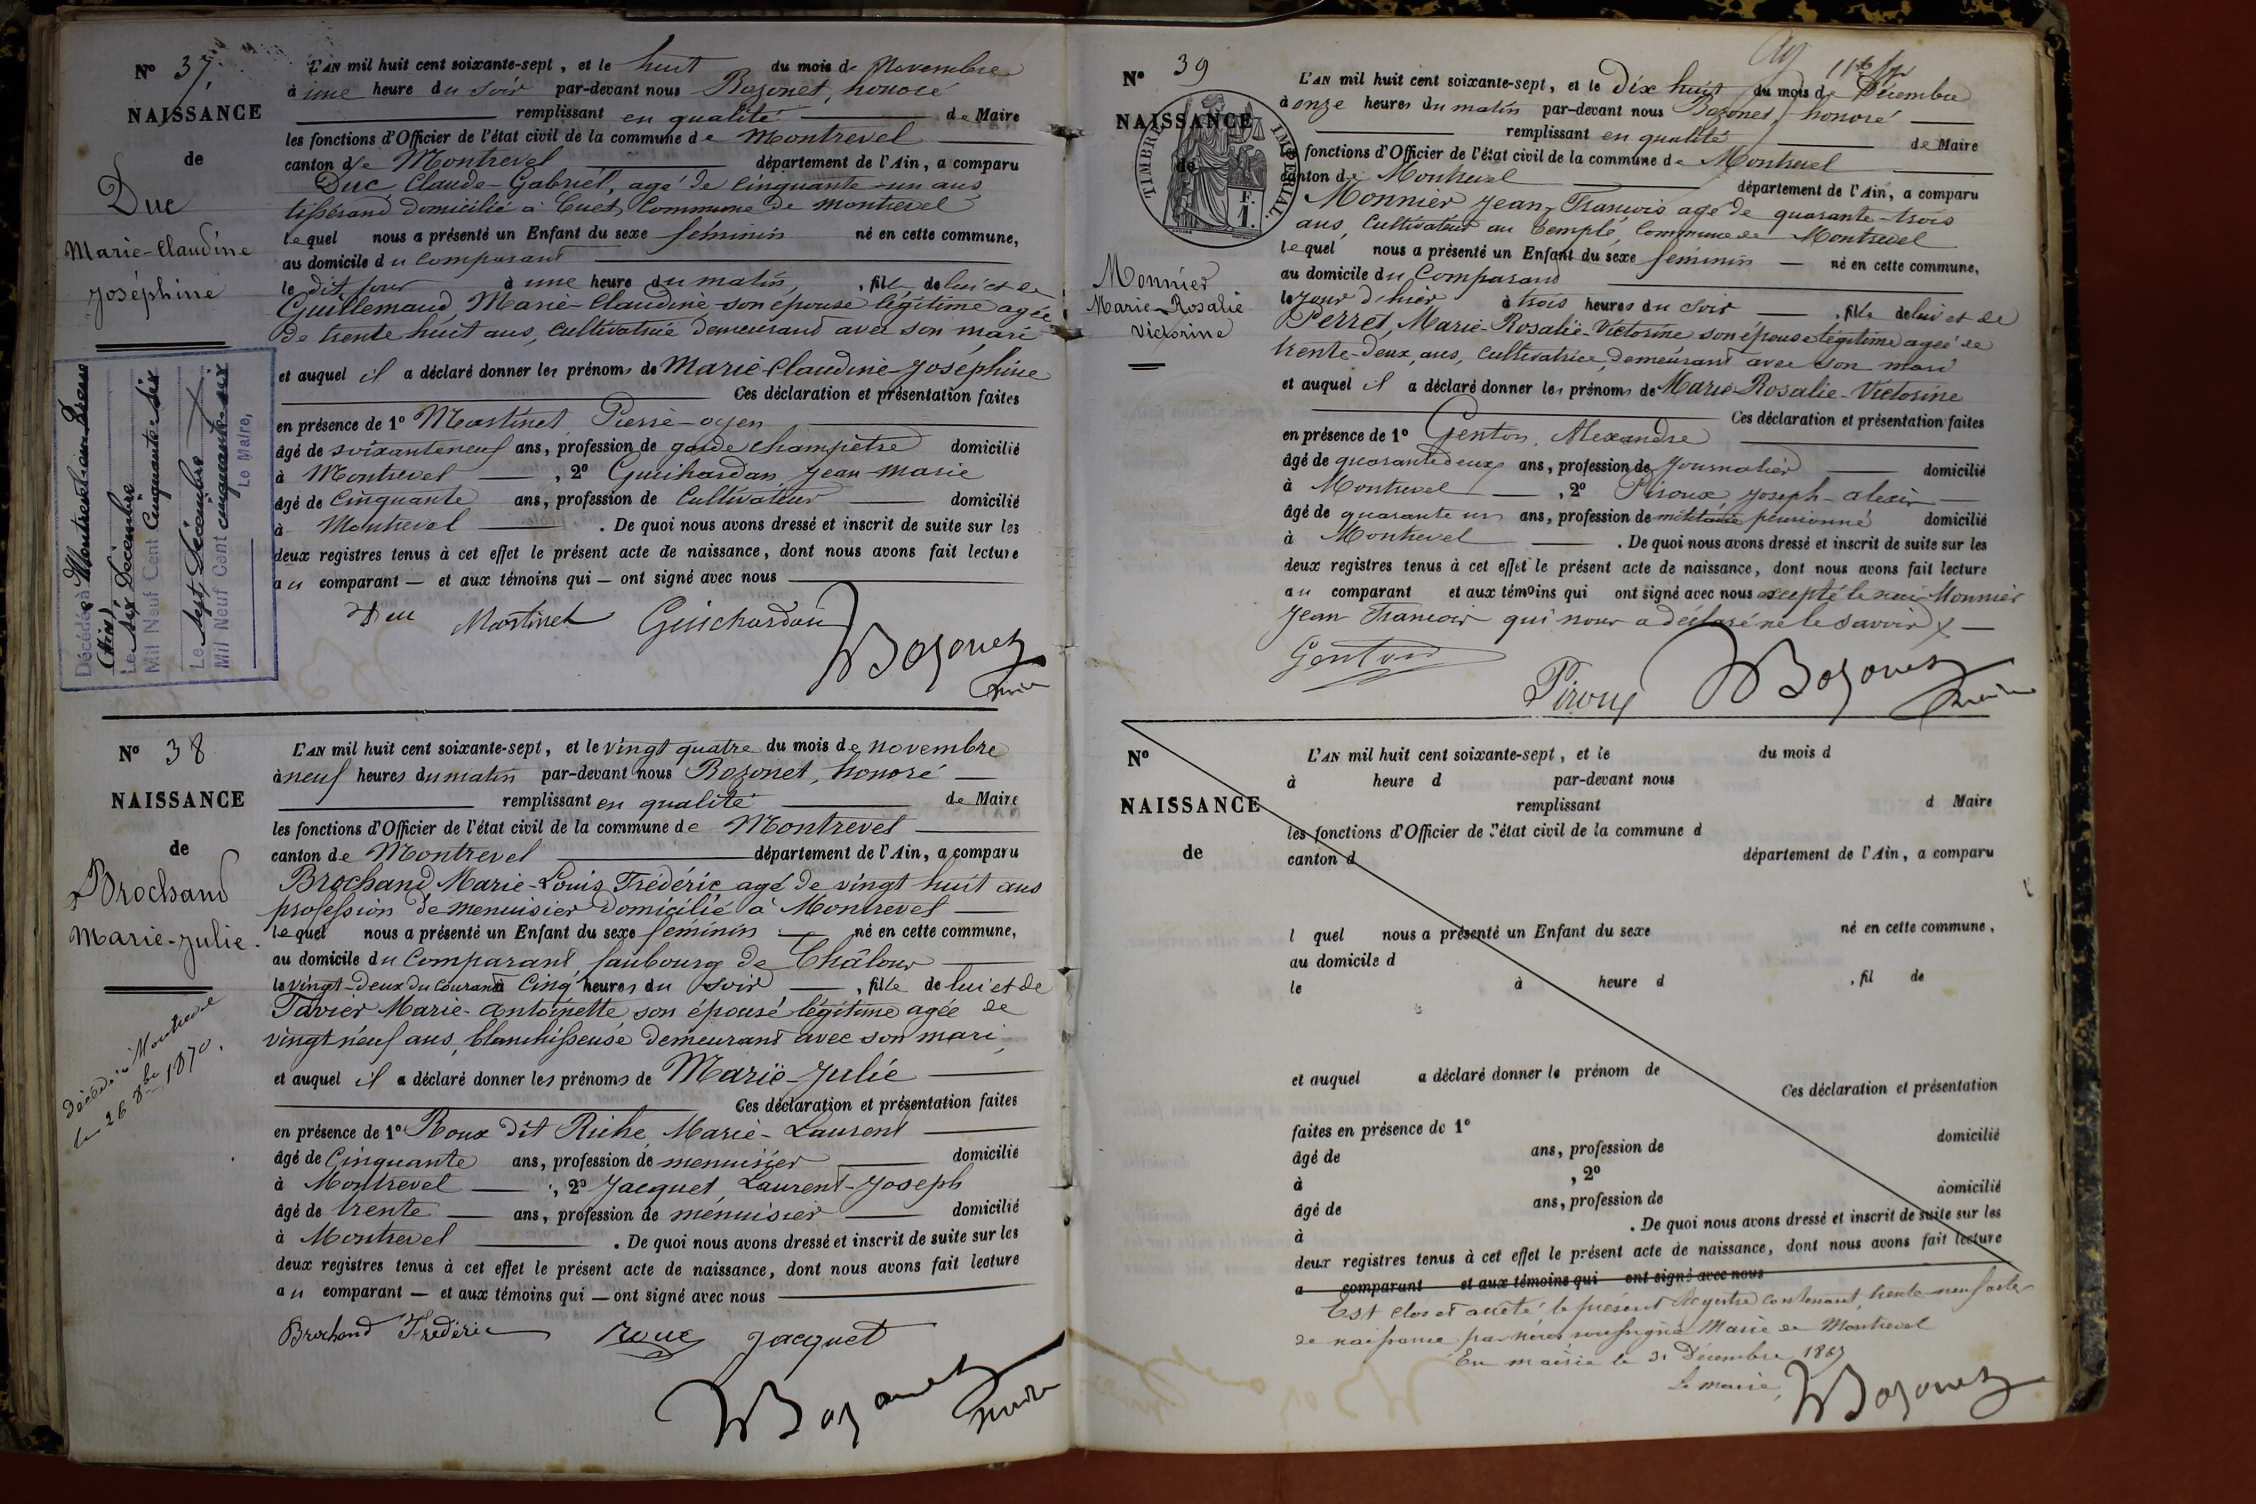 N° 37.
NAISSANCE
de
Duc
Marie-Claudine
Joséphine
Décédée à Montrevel-en-Bresse
(Ain)
Le six Décembre
Mil Neuf Cent Cinquante-six
Le sept Décembre
Mil Neuf Cent cinquante-six
Le Maire,
L'AN mil huit cent soixante-sept, et le huit du mois de Novembre
à une heure du soir par-devant nous Bozonet, honoré
remplissant en qualité de Maire
les fonctions d'Officier de l'état civil de la commune de Montrevel
canton de Montrevel département de l'Ain, a comparu
Duc, Claude-Gabriel, agé de Cinquante-un ans
tisserand domicilié à Cuet, Commune de Montrevel
lequel nous a présenté un Enfant du sexe féminin né en cette commune,
au domicile du Comparant
le dit jour à une heure du matin, fille de lui et de
Guillemaud, Marie-Claudine son épouse légitime agée
de trente huit ans, cultivatrice demeurant avec son mari
et auquel il a déclaré donner les prénoms de Marie-Claudine-Joséphine
Ces déclaration et présentation faites
en présence de 1° Martinet, Pierre-oyen
âgé de soixante neuf ans, profession de garde champêtre domicilié
à Montrevel, 2° Guichardan, Jean Marie
âgé de Cinquante ans, profession de Cultivateur domicilié
à Montrevel. De quoi nous avons dressé et inscrit de suite sur les
deux registres tenus à cet effet le présent acte de naissance, dont nous avons fait lecture
au comparant — et aux témoins qui — ont signé avec nous
Duc Martinet Guichardan
Bozonet
maire
N° 38
NAISSANCE
de
Brochand
Marie-Julie.
décédée à Montrevel
le 26 8bre 1870.
L'AN mil huit cent soixante-sept, et le vingt quatre du mois de novembre
à neuf heures du matin par-devant nous Bozonet, honoré
remplissant en qualité de Maire
les fonctions d'Officier de l'état civil de la commune de Montrevel
canton de Montrevel département de l'Ain, a comparu
Brochand, Marie-Louis Frédéric agé de vingt huit ans
profession de menuisier domicilié à Montrevel
lequel nous a présenté un Enfant du sexe féminin né en cette commune,
au domicile du Comparant, faubourg de Châlour
le vingt-deux du courant à Cinq heures du soir, fille de lui et de
Tavier Marie-antoinette son épouse légitime agée de
vingt neuf ans, blanchisseuse demeurant avec son mari
et auquel il a déclaré donner les prénoms de Marie-Julie
Ces déclaration et présentation faites
en présence de 1° Roux dit Riche, Marie-Laurent
âgé de Cinquante ans, profession de menuisier domicilié
à Montrevel, 2° Jacquet, Laurent-Joseph
âgé de trente ans, profession de menuisier domicilié
à Montrevel. De quoi nous avons dressé et inscrit de suite sur les
deux registres tenus à cet effet le présent acte de naissance, dont nous avons fait lecture
au comparant — et aux témoins qui — ont signé avec nous
Brochand Frédéric Roux Jacquet
Bozonet
maire
N° 39
NAISSANCE
de
TIMBRE IMPERIAL.
1 F.
Monnier
Marie-Rosalie
Victorine
L'AN mil huit cent soixante-sept, et le Dix huit du mois de Décembre
à onze heures du matin par-devant nous Bozonet, honoré
remplissant en qualité de Maire
les fonctions d'Officier de l'état civil de la commune de Montrevel
canton de Montrevel département de l'Ain, a comparu
Monnier Jean-François agé de quarante-trois
ans, Cultivateur au Temple, Commune de Montrevel
lequel nous a présenté un Enfant du sexe féminin — né en cette commune,
au domicile du Comparant
le jour d'hier à trois heures du soir, fille de lui et de
Perret, Marie-Rosalie-Victorine son épouse légitime agée de
trente-deux, ans, cultivatrice, demeurant avec son mari
et auquel il a déclaré donner les prénoms de Marie-Rosalie-Victorine
Ces déclaration et présentation faites
en présence de 1° Genton, Alexandre
âgé de quarante deux ans, profession de Journalier domicilié
à Montrevel, 2° Piroux, Joseph-alexis
âgé de quarante un ans, profession de militaire pensionné domicilié
à Montrevel. De quoi nous avons dressé et inscrit de suite sur les
deux registres tenus à cet effet le présent acte de naissance, dont nous avons fait lecture
au comparant et aux témoins qui ont signé avec nous excepté le Monnier
Jean François qui nous a déclaré ne le savoir
Genton
Piroux Bozonet
maire
N°
NAISSANCE
de
L'AN mil huit cent soixante-sept, et le du mois d
à heure d par-devant nous
remplissant d Maire
les fonctions d'Officier de l'état civil de la commune d
canton d département de l'Ain, a comparu
l quel nous a présenté un Enfant du sexe né en cette commune,
au domicile d
le à heure d , fil de
et auquel a déclaré donner le prénom de
Ces déclaration et présentation
faites en présence de 1°
âgé de ans, profession de domicilié
à , 2°
âgé de ans, profession de domicilié
à . De quoi nous avons dressé et inscrit de suite sur les
deux registres tenus à cet effet le présent acte de naissance, dont nous avons fait lecture
a comparant et aux témoins qui ont signé avec nous
Est clos et arrêté le présent Registre contenant trente-neuf actes
de naissance par nous soussigné Maire de Montrevel
En mairie le 31 Décembre 1867
Le maire,
Bozonet